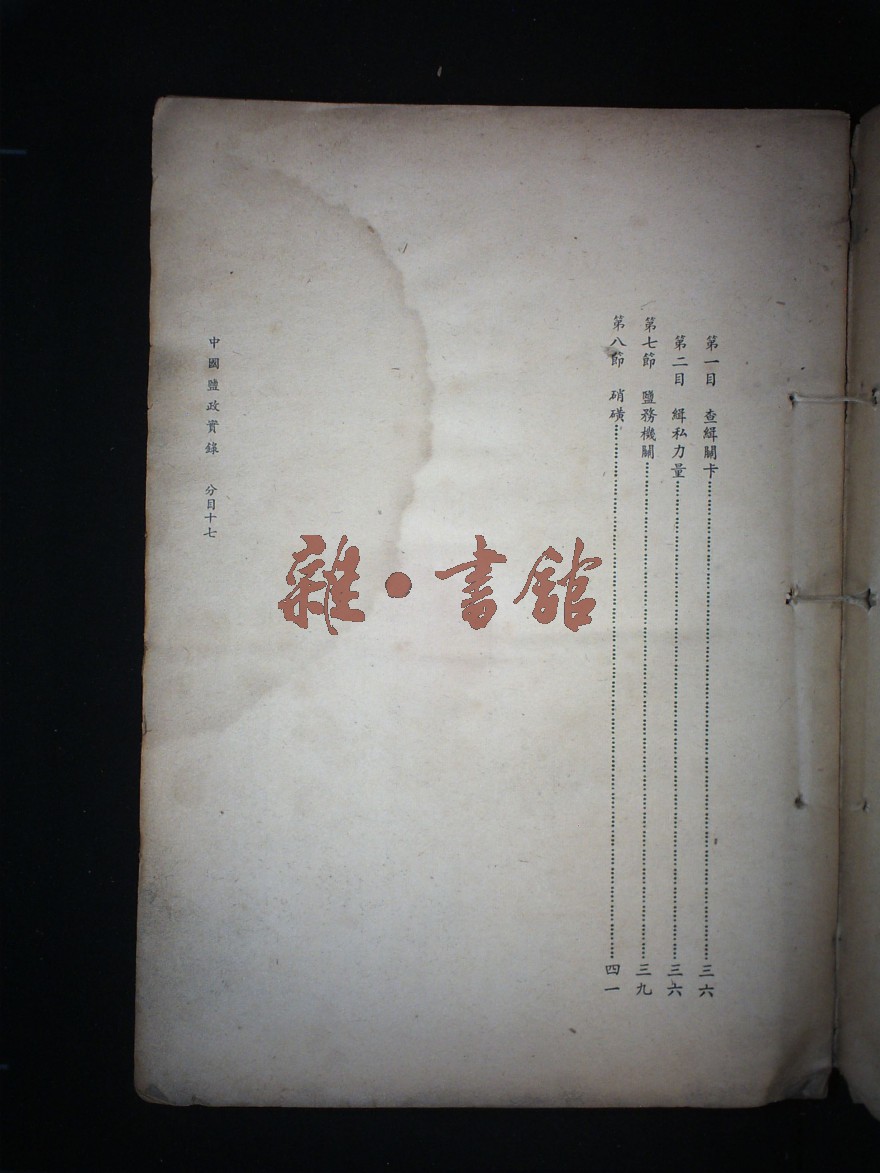 第一目　查緝關卡…………三六
第二目　緝私力量…………三六
第七節　鹽務機關…………三九
第八節　硝磺…………四一
中國鹽政實錄　分目十七
雜·書館